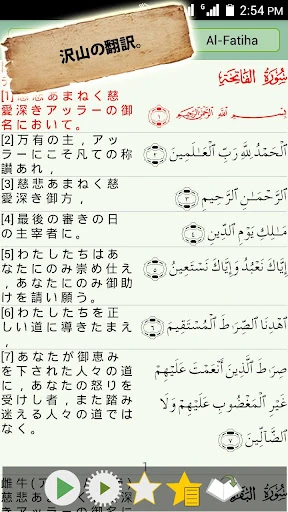 2:54 PM
沢山の翻訳。
Al-Fatiha
سُورَةُ الفَاتِحَةِ
[1] 慈悲あまねく慈
愛深きアッラーの御
名において。
بِسْمِ ٱللَّهِ ٱلرَّحْمَـٰنِ ٱلرَّحِيمِ ١
[2] 万有の主，アッ
ラーにこそ凡ての称
讃あれ，
ٱلْحَمْدُ لِلَّهِ رَبِّ ٱلْعَـٰلَمِينَ ٢
[3] 慈悲あまねく慈
愛深き御方，
ٱلرَّحْمَـٰنِ ٱلرَّحِيمِ ٣
[4] 最後の審きの日
の主宰者に。
مَـٰلِكِ يَوْمِ ٱلدِّينِ ٤
[5] わたしたちはあ
なたにのみ崇め仕え
，あなたにのみ御助
けを請い願う。
إِيَّاكَ نَعْبُدُ وَإِيَّاكَ نَسْتَعِينُ ٥
[6] わたしたちを正
しい道に導きたまえ
，
ٱهْدِنَا ٱلصِّرَٰطَ ٱلْمُسْتَقِيمَ ٦
[7] あなたが御恵み
を下された人々の道
に，あなたの怒りを
受けし者，また踏み
迷える人々の道では
なく。
صِرَٰطَ ٱلَّذِينَ أَنْعَمْتَ عَلَيْهِمْ
غَيْرِ ٱلْمَغْضُوبِ عَلَيْهِمْ وَلَا
ٱلضَّآلِّينَ ٧
1
雌牛(ア
慈悲あ
深きア